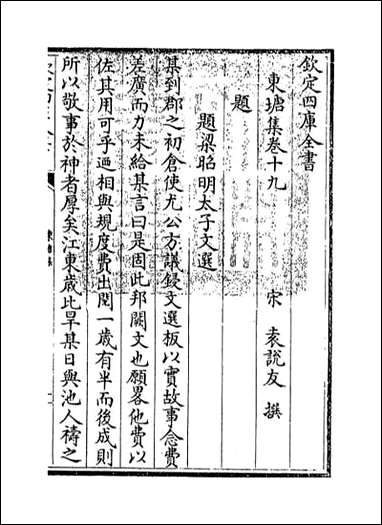 欽定四庫全書
東塘集卷十九
宋 袁說友 撰
題
題梁昭明太子文選
某到郡之初倉使尤公方議鋟文選板以實故事念費
差廣而力未給某言曰是固此邦闕文也願畧他費以
佐其用可乎迺相與規度費出閱一歲有半而後成則
所以敬事於神者厚矣江東歲比旱某日與池人禱之